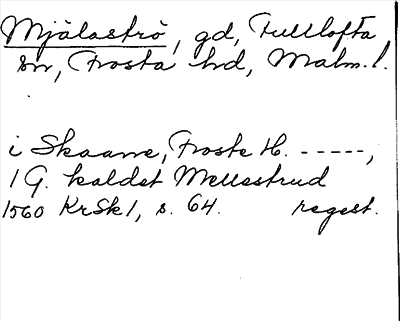 Mjälaströ, gd, Fulltofta
sn, Frosta hd, Malm.l.
i Skaane, Froste H. -----,
1 G. kaldet Mellestrud
1560 KrSk1, s. 64. regest.